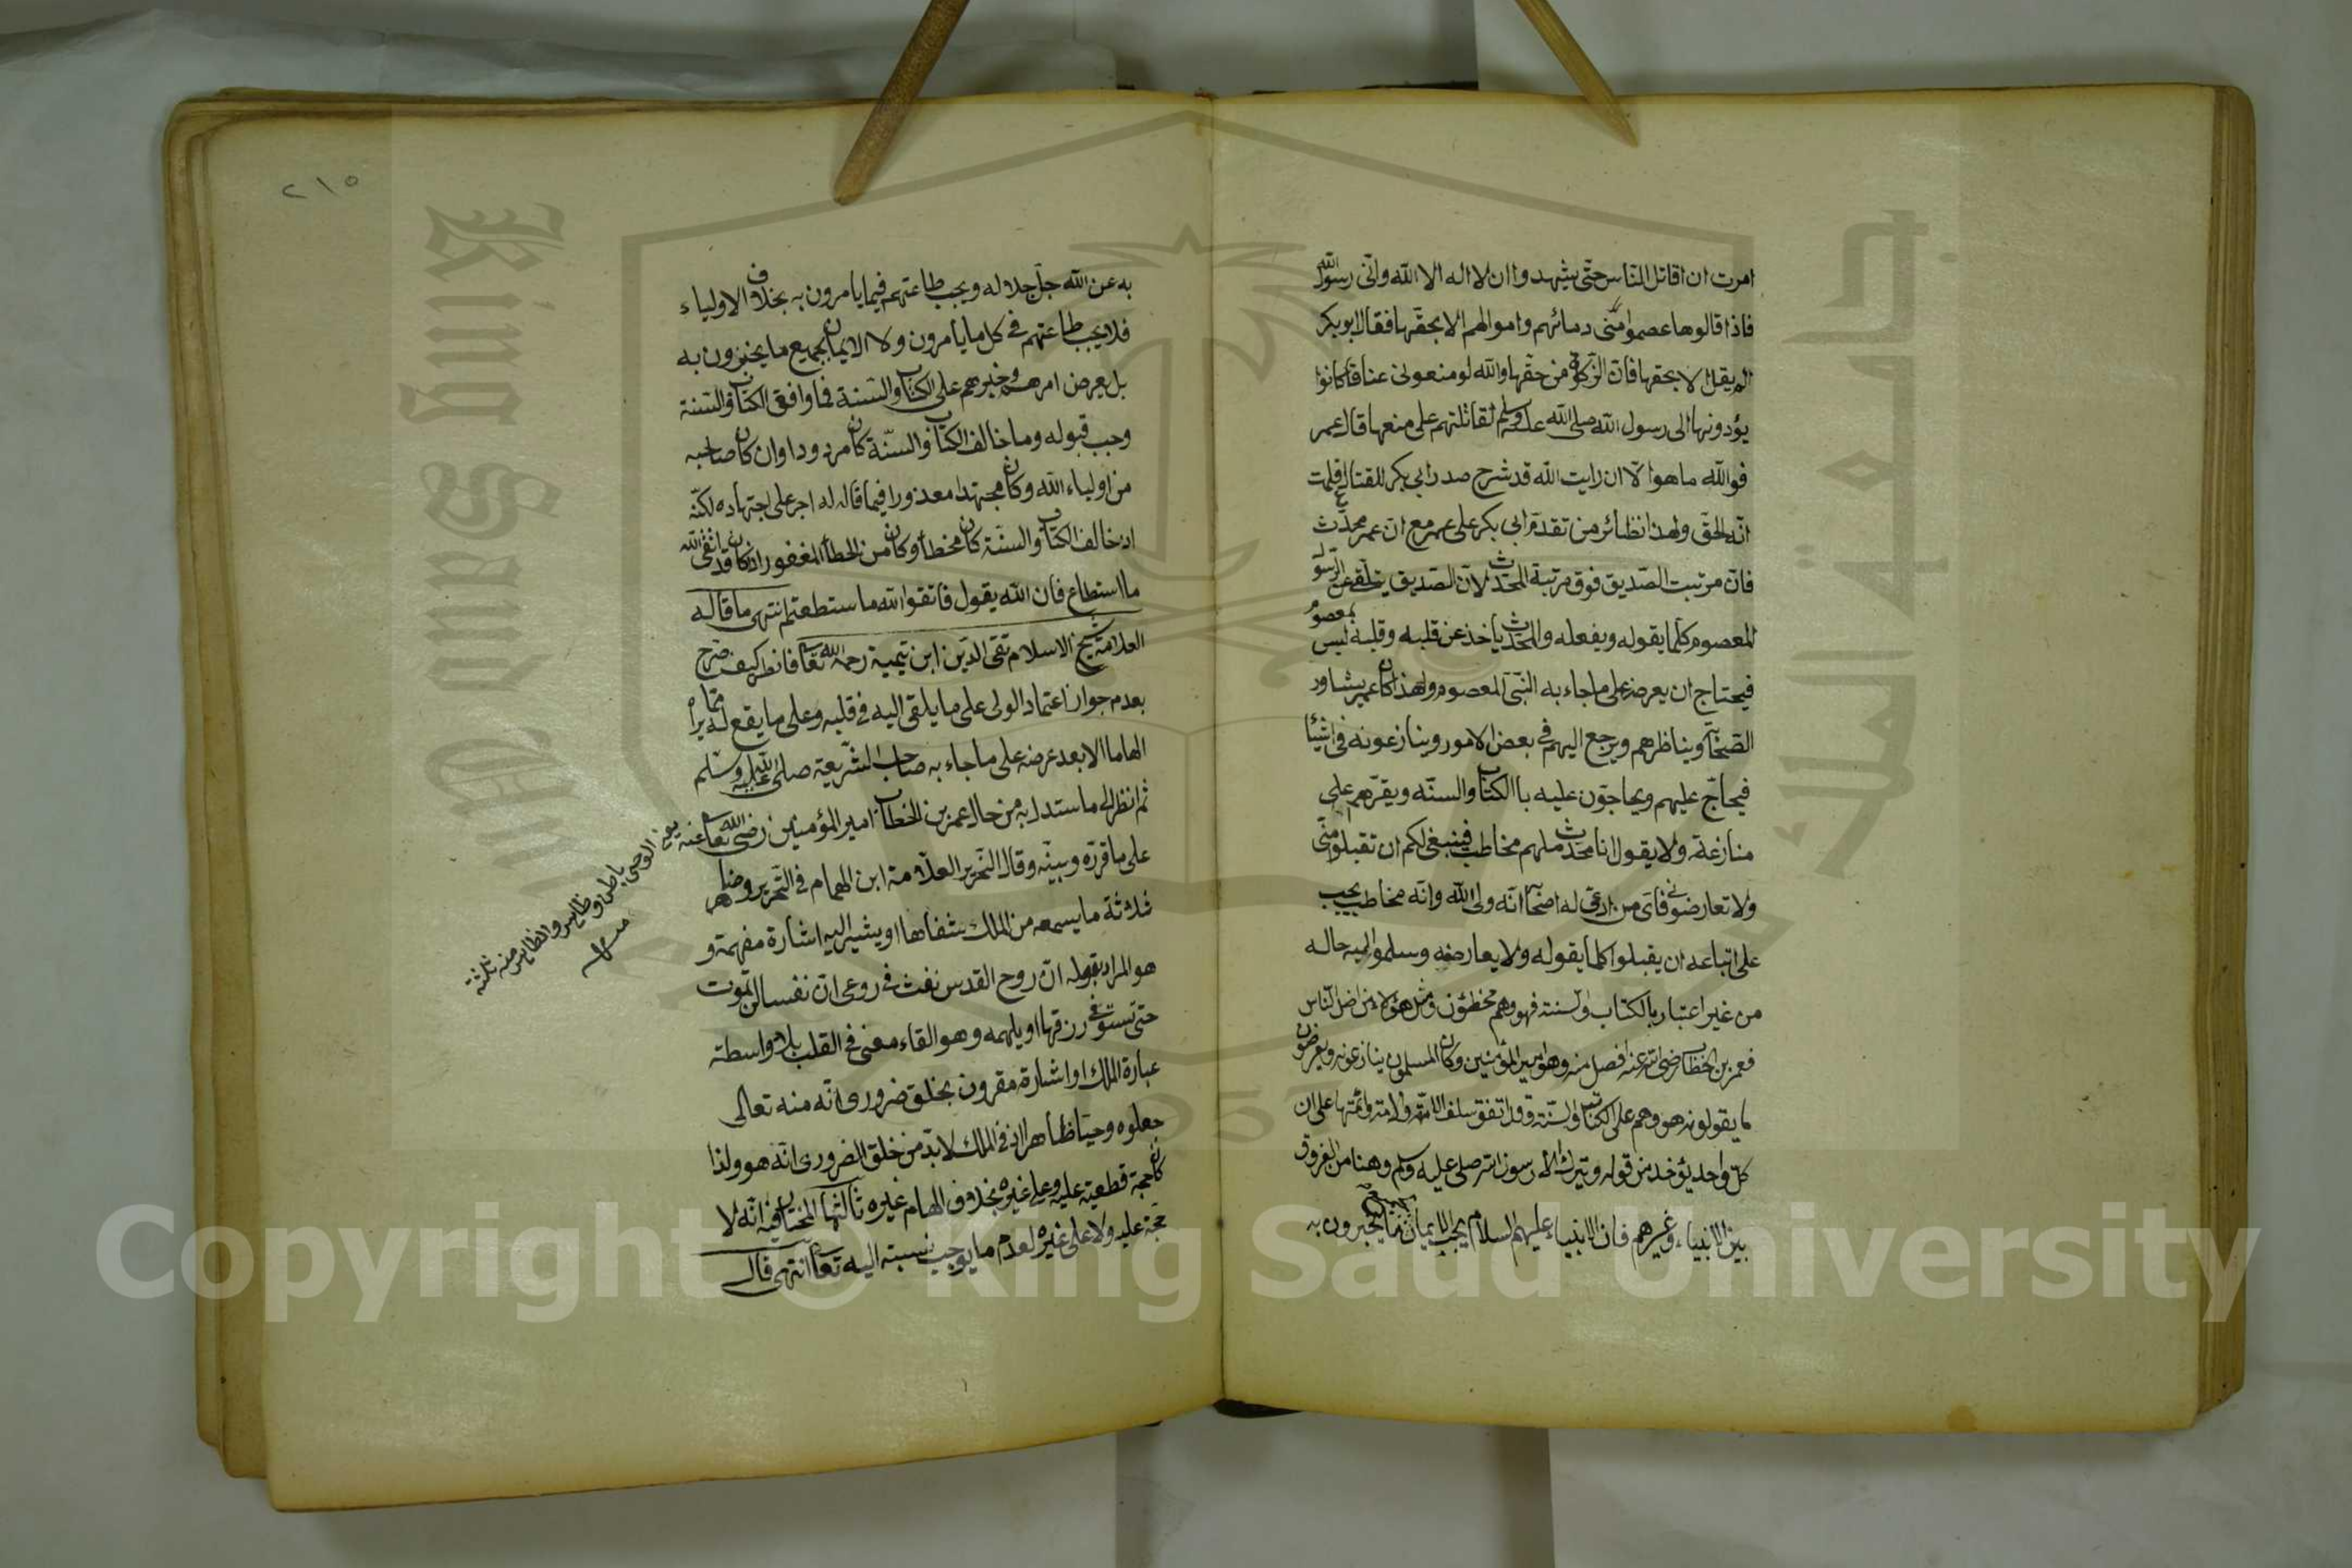 امرت ان اقاتل الناس حتى يشهدوا ان لا اله الا الله وانّى رسول الله
فاذا قالوها عصموا منّى دمائهم واموالهم الا بحقّها فقال ابو بكر
الم يقل الا بحقها فان الزكوة من حقّها والله لو منعونى عناقا كانوا
يؤدونها الى رسول الله صلى الله عليه وسلم لقاتلتهم على منعها قال عمر
فوالله ما هو الّا ان رايت الله قد شرح صدر ابى بكر للقتال فعلمت
انّه الحقّ ولهذا نظائر من تقدّم ابى بكر على عمر مع انّ عمر محدّث
فانّ مرتبت الصّديق فوق مرتبة المحدّث لانّ الصّديق يتلقى عن الرّسول
المعصوم كلّما يقوله ويفعله والمحدّث ياخذ عن قلبه وقلبه ليس بمعصوم
فيحتاج ان يعرضه على ما جاء به النّبىّ المعصوم ولهذا كان عمر يشاور
الصّحابة ويناظرهم ويرجع اليهم فى بعض الامور وينازعونه فى اشيئا
فيحاجّ عليهم ويحاجّون عليه باالكتاب والسنّه ويقرّهم على
منازعته ولا يقول انا محدّث ملهم مخاطب فينبغى لكم ان تقبلو منّى
ولا تعارضونى فاىّ من ادعى له اصحابه انّه ولى الله وانّه مخاطب يجب
على اتباعه ان يقبلوا كلما يقوله ولا يعارضه وسلموا اليه حاله
من غير اعتبار بالكتاب والسنة فهو وهم مخطؤن ومثل هؤلاء من اضل الناس
فعمر بن الخطاب رضى الله عنه افضل منه وهو امير المؤمنين وكان المسلمون ينازعونه ويعرضون
ما يقولونه هو وهم على الكتاب والسنة وقد اتفق سلف الامة والامة وائمتها على ان
كل واحد يؤخذ من قوله ويترك الا رسول الله صلى عليه وسلم وهنا من الفروق
بين الانبياء وغيرهم فان الانبياء عليهم السلام يجب الايمان بجميع ما يخبرون به
٢١٥
به عن الله جلّ جلاله ويجب طاعتهم فيما يامرون به بخلاف الاولياء
فلا يجب طاعتهم فى كل ما يأمرون ولا الايمان بجميع ما يخبرون به
بل يعرض امرهم وخبرهم على الكتاب والسّنة فما وافق الكتاب والسّنة
وجب قبوله وما خالف الكتاب والسنّة كان مردودا وان كان صاحبه
من اولياء الله وكان مجتهدا معذورا فيما قاله له اجر على اجتهاده لكنّه
اذ خالف الكتاب والسنّة كان مخطأ وكان من الخطأ المغفور ان كان قد اتقى الله
ما استطاع فان الله يقول فاتقوا الله ما ستطعتم انتهى ما قاله
العلامة شيخ الاسلام تقى الدّين ابن تيمية رحمه الله تعا فانظر كيف صرّح
بعدم جواز اعتماد الولى على ما يلقى اليه فى قلبه وعلى ما يقع له مما يراه
الهاما الا بعد عرضه على ما جاء به صاحب الشّريعة صلى الله عليه وسلم
ثم انظر الى ما ستدل به من حال عمر بن الخطاب امير المؤمنين رضى الله تعا عنه
على ما قرّره وبينه وقال النّحرير العلّامة ابن الهمام فى التّحرير وضاهر
ثلاثة ما يسمعه من الملك شفاها او يشير اليه اشارة مفهمة و
هو المراد بقوله انّ روح القدس نفث فى روعى انّ نفسا لن تموت
حتى تستوفى رزقها او يلهمه وهو القاء معنى فى القلب بلا واسطة
عبارة الملك او اشارته مقرون بخلق ضرورى انّه منه تعالى
جعلوه وحيا ظاهرا اذ فى الملك لا بدّ من خلق الضرورى انه هو ولذا
كان حجة قطعية عليه وعلى غيره بخلاف الهام غيره ثالثها المختار فيه انّه لا
حجّة عليه ولا على غيره لعدم ما يوجب نسبته اليه تعا انتهى قال
يعنى الوحى باطن وظاهر والظاهر منه ثلثة
منه
Copyright © King Saud University
King Saud University